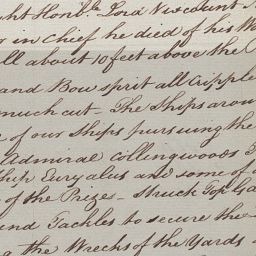 ght Honble Lord Viscount N
r in Chief he died of his W
ll about 10 feet above the
and Bow sprit all Cripple
much cut - The Ships arou
e of our Ships pursuing the
Admiral Collengwoods
Ship Euryalus and some of
of the Prizes - Struck Top Ga
and Tackles to secure the
g the Wrecks of the Yards